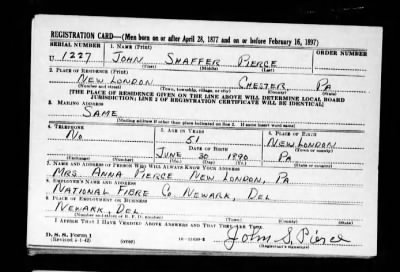 REGISTRATION CARD—(Men born on or after April 28, 1877 and on or before February 16, 1897)
SERIAL NUMBER 1. NAME (Print) ORDER NUMBER
U 1227 JOHN SHAFFER PIERCE
(First) (Middle) (Last)
2. PLACE OF RESIDENCE (Print)
NEW LONDON CHESTER PA
(Number and street) (Town, township, village, or city) (County) (State)
[THE PLACE OF RESIDENCE GIVEN ON THE LINE ABOVE WILL DETERMINE LOCAL BOARD
JURISDICTION; LINE 2 OF REGISTRATION CERTIFICATE WILL BE IDENTICAL]
3. MAILING ADDRESS
SAME
[Mailing address if other than place indicated on line 2. If same insert word same]
4. TELEPHONE 5. AGE IN YEARS 6. PLACE OF BIRTH
NO. 51 NEW LONDON
DATE OF BIRTH (Town or county)
JUNE 30 1890 PA.
(Exchange) (Number) (Mo.) (Day) (Yr.) (State or country)
7. NAME AND ADDRESS OF PERSON WHO WILL ALWAYS KNOW YOUR ADDRESS
MRS. ANNA PIERCE NEW LONDON, PA
8. EMPLOYER'S NAME AND ADDRESS
NATIONAL FIBRE CO. NEWARK, DEL
9. PLACE OF EMPLOYMENT OR BUSINESS
NEWARK, DEL.
(Number and street or R. F. D. number) (Town) (County) (State)
I AFFIRM THAT I HAVE VERIFIED ABOVE ANSWERS AND THAT THEY ARE TRUE.
D. S. S. Form 1
(Revised 4-1-42) (over) John S. Pierce
(Registrant's signature)